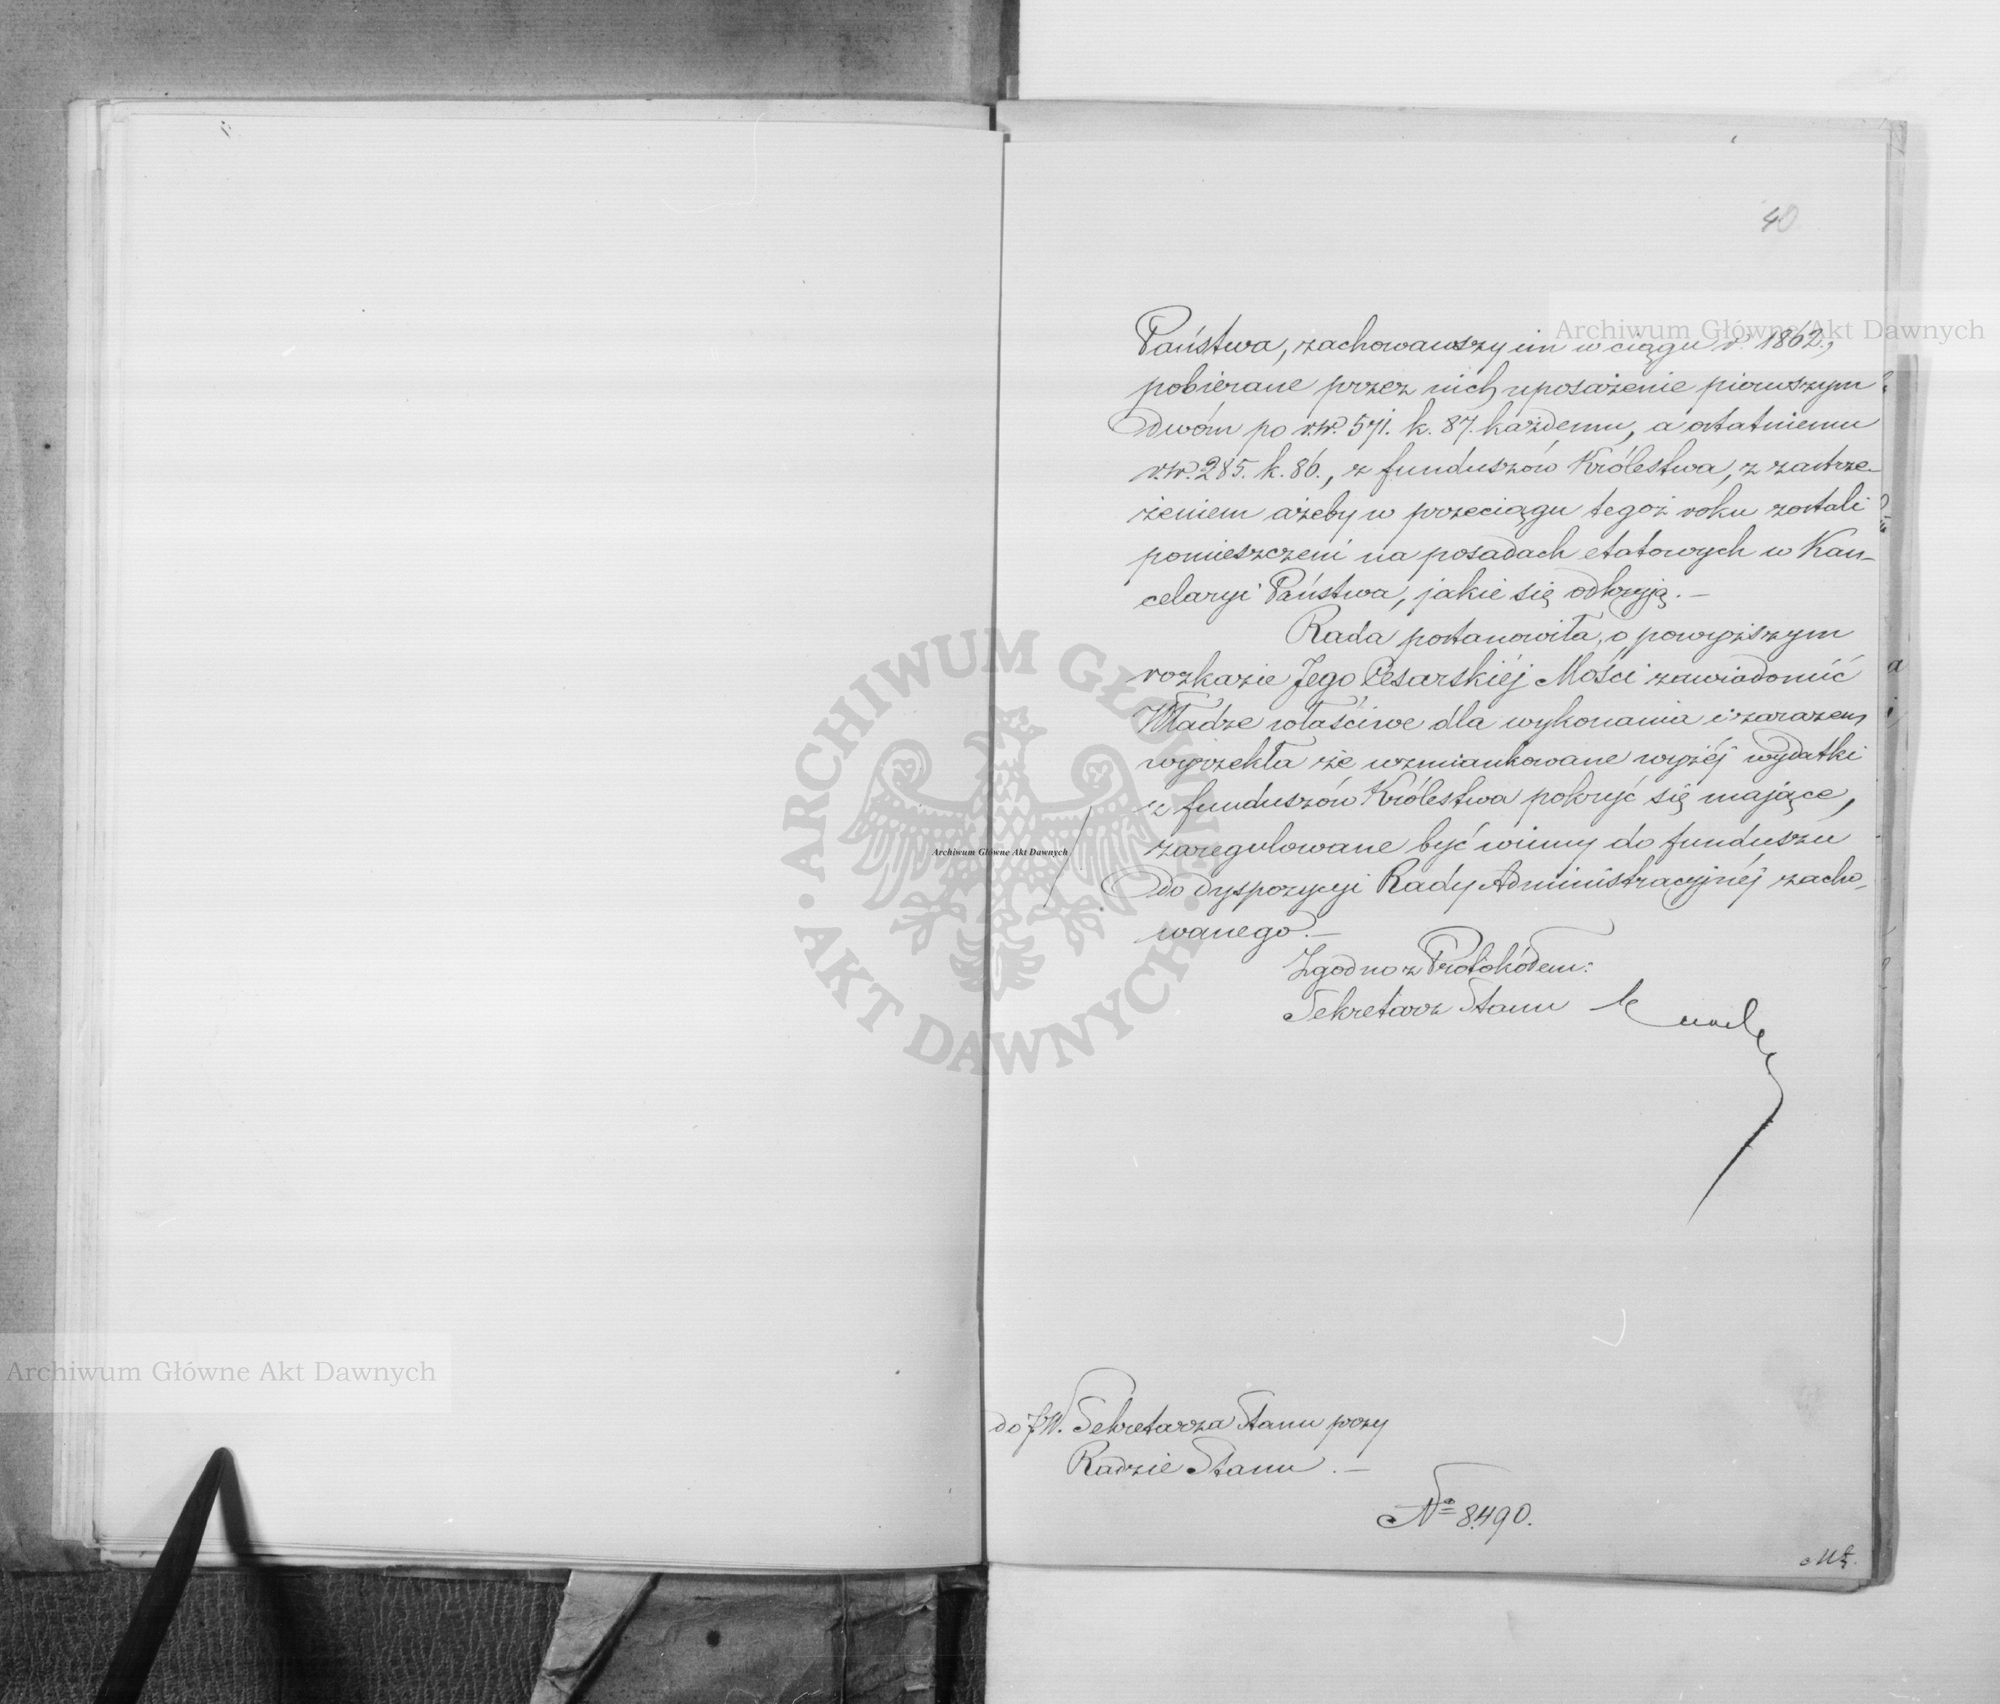 40
Archiwum Główne Akt Dawnych
Państwa, zachowawszy im w ciągu r. 1862.,
pobierane przez nich uposażenie pierwszym
dwóm po r.sr. 571. k. 87. każdemu, a ostatniemu
r.sr. 285. k. 86., z funduszów Królestwa, z zastrze-
żeniem ażeby w przeciągu tegoż roku zostali
pomieszczeni na posadach etatowych w Kan-
celaryi Państwa, jakie się odkryją. —
Rada postanowiła, o powyższym
rozkazie Jego Cesarskiéj Mości zawiadomić
Władze właściwe dla wykonania i zarazem
wyrzekła że wzmiankowane wyżéj wydatki
z funduszów Królestwa pokryć się mające,
zaregulowane być winny do funduszu
do dyspozycyi Rady Administracyjnéj zacho-
wanego. —
Zgodno z Protokółem:
Sekretarz Stanu
ARCHIWUM GŁÓWNE AKT DAWNYCH
Archiwum Główne Akt Dawnych
Archiwum Główne Akt Dawnych
do JW. Sekretarza Stanu przy
Radzie Stanu. —
No 8490.